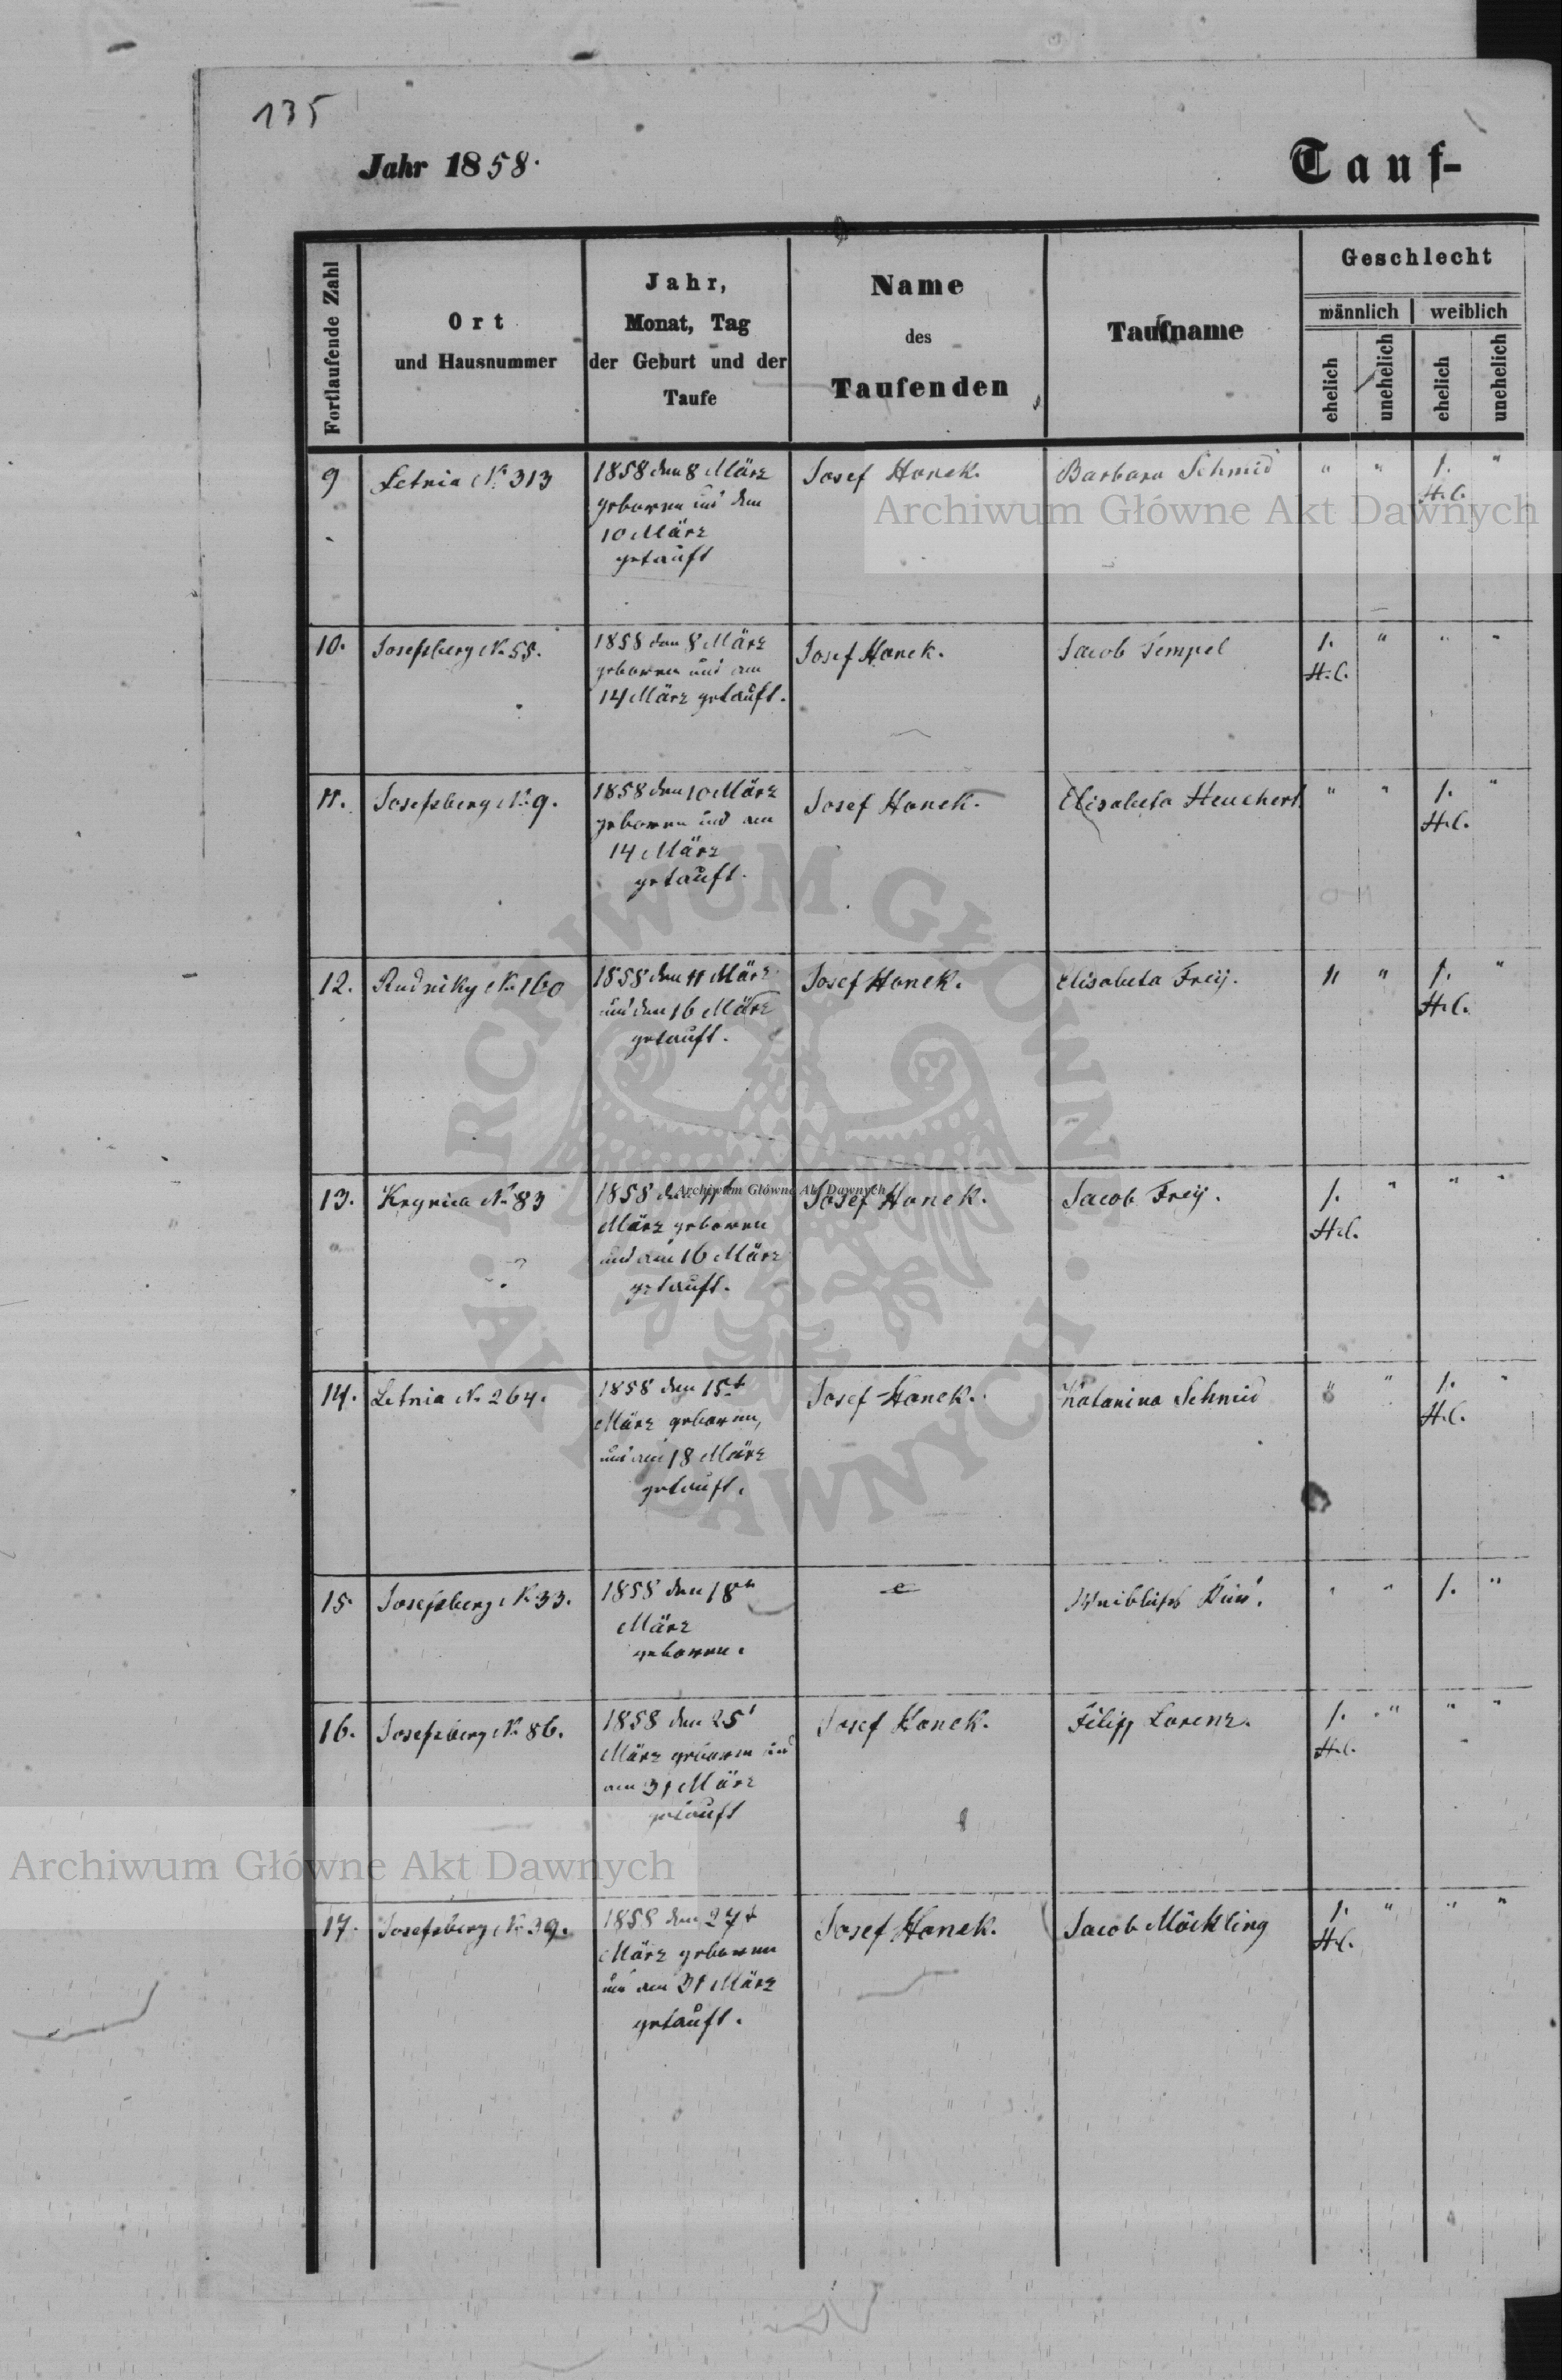 135
Jahr 1858.
Tauf-
Fortlaufende Zahl
Ort
und Hausnummer
Jahr,
Monat, Tag
der Geburt und der
Taufe
Name
des
Taufenden
Taufname
Geschlecht
männlich
weiblich
ehelich
unehelich
ehelich
unehelich
9 Letnia No 313 1858 den 8 März Josef Hanek. Barbara Schmid " " 1. "
geboren und den H.C.
10 März
getauft
10. Josefsberg No 55. 1858 den 8 März Josef Hanek. Jacob Tempel 1. " " "
geboren und am H.C.
14 März getauft.
11. Josefsberg No 9. 1858 den 10 März Josef Hanek. Elisabeta Heuchert " " 1. "
geboren und am H.C.
14 März
getauft.
12. Rudniky No 160 1858 den 11 März Josef Hanek. Elisabeta Freÿ. " " 1. "
und den 16 März H.C.
getauft.
13. Krynica No 83 1858 den 11t Josef Hanek. Jacob Freÿ. 1. " " "
März geboren H.C.
und am 16 März
getauft.
14. Letnia No 264. 1858 den 15t Josef Hanek. Katarina Schmid " " 1. "
März geboren, H.C.
und am 18 März
getauft.
15. Josefsberg No 33. 1858 den 18n Weibliches Kind. " " 1. "
März
geboren.
16. Josefsberg No 86. 1858 den 25t Josef Hanek. Filipp Lorenz. 1. " " "
März geboren und H.C.
am 31 März
getauft
17. Josefsberg No 39. 1858 den 27t Josef Hanek. Jacob Möckling 1. " " "
März geboren H.C.
und am 31 März
getauft.
Archiwum Główne Akt Dawnych
ARCHIWUM GŁÓWNE AKT DAWNYCH
Archiwum Główne Akt Dawnych
Archiwum Główne Akt Dawnych